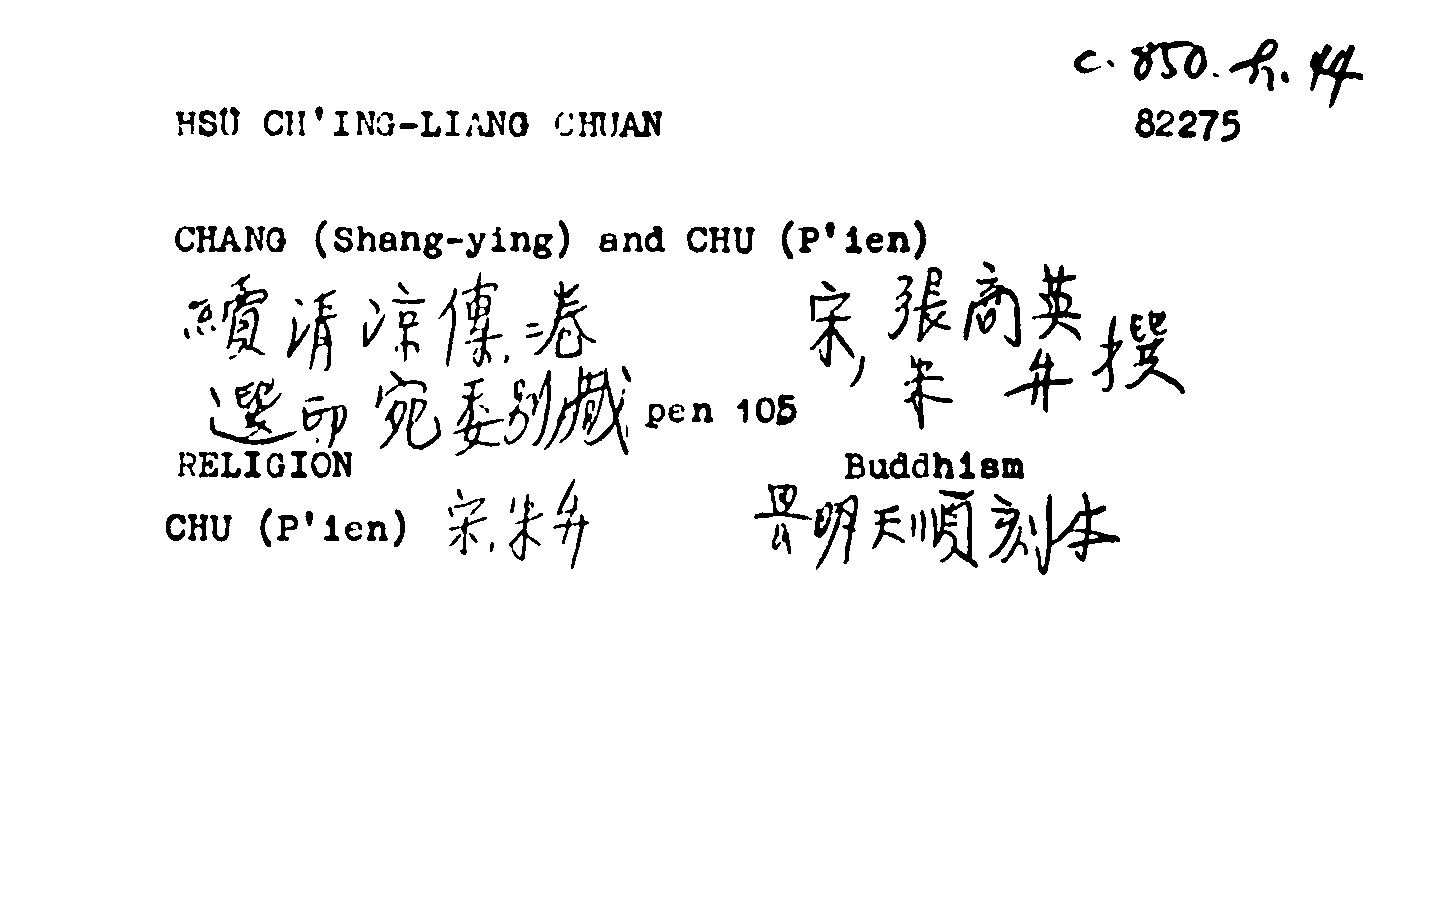 c. 850. h. 44
HSÜ CH'ING-LIANG CHUAN 82275
CHANG (Shang-ying) and CHU (P'ien)
續清涼傳.二卷 宋,張商英
朱弁撰
選印宛委別藏 pen 105
RELIGION Buddhism
CHU (P'ien) 宋.朱弁 景明天順刻本